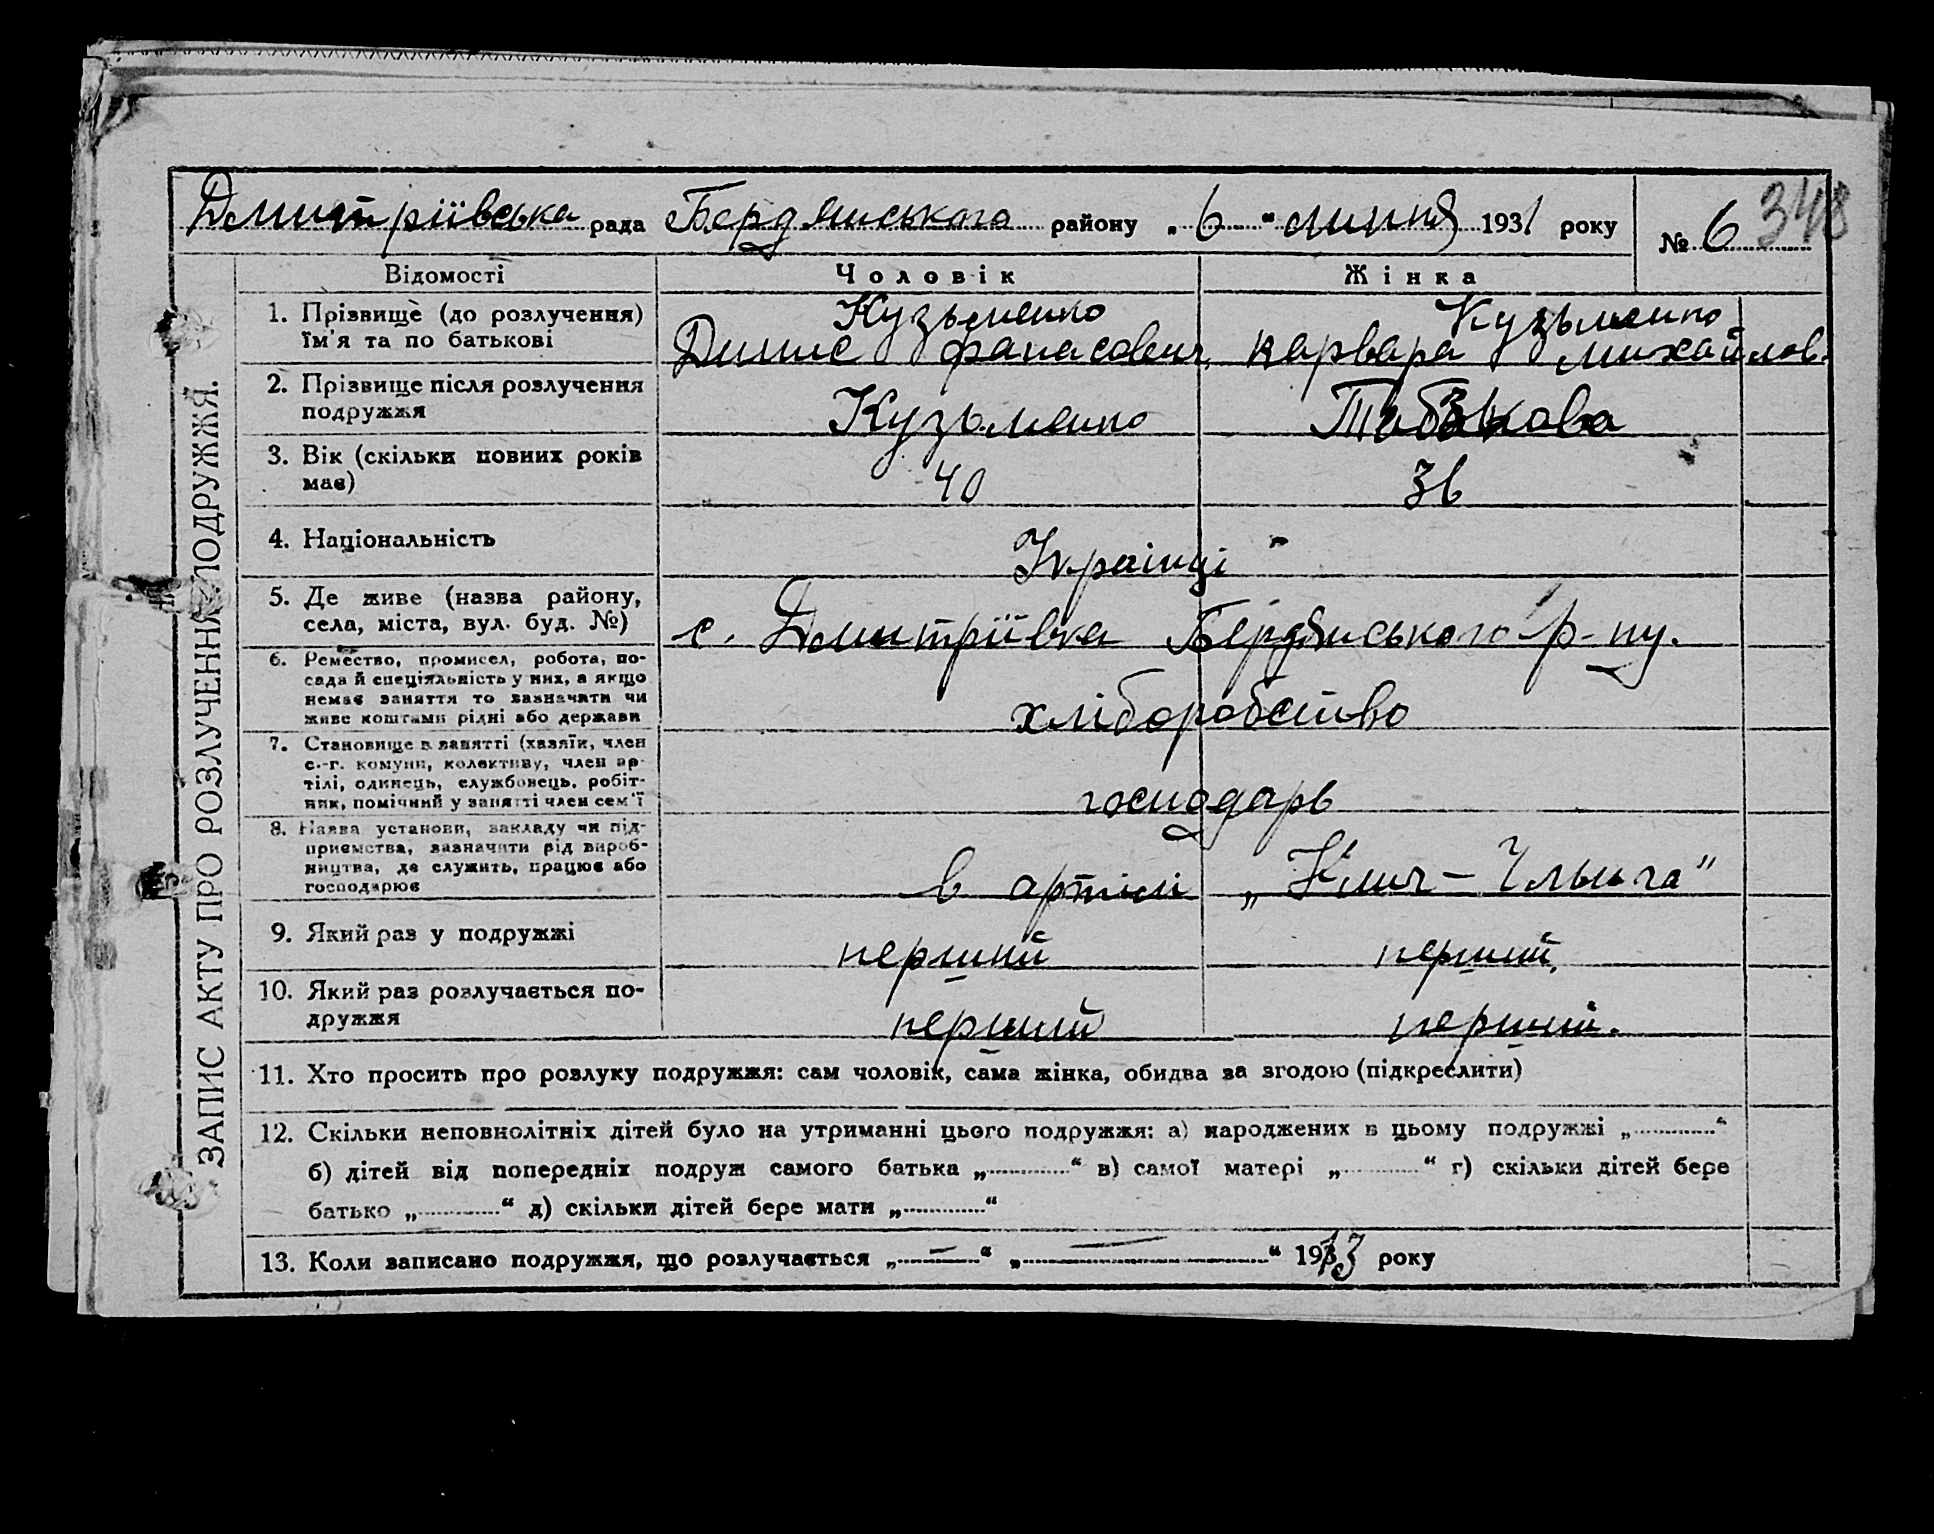 Дмитріївська рада Бердянського району „6“ липня 1931 року № 6 348
ЗАПИС АКТУ ПРО РОЗЛУЧЕННЯ ПОДРУЖЖЯ.
Відомості Чоловік Жінка
1. Прізвище (до розлучення) Кузьменко Кузьменко
їм'я та по батькові Динис Фанасович Варвара Михайлов.
2. Прізвище після розлучення
подружжя Кузьменко
3. Вік (скільки повних років
має) 40 36
4. Національність Українці
5. Де живе (назва району,
села, міста, вул. буд. №) с. Дмитріївка Бердянського р-ну.
6. Ремество, промисел, робота, по-
сада й спеціяльність у них, а якщо
немає заняття то зазначити чи
живе коштами рідні або держави хліборобство
7. Становище в занятті (хазяїн, член
с.-г. комуни, колективу, член ар-
тілі, одинець, службовець, робіт-
ник, помічний у занятті член сем'ї господарь
8. Назва установи, закладу чи під-
приємства, зазначити рід вироб-
ництва, де служить, працює або
господарює в артілі „Клич-Ільича"
9. Який раз у подружжі перший перший.
10. Який раз розлучається по-
дружжя перший перший.
11. Хто просить про розлуку подружжя: сам чоловік, сама жінка, обидва за згодою (підкреслити)
12. Скільки неповнолітніх дітей було на утриманні цього подружжя: а) народжених в цьому подружжі „............“
б) дітей від попередніх подруж самого батька „............“ в) самої матері „............“ г) скільки дітей бере
батько „............“ д) скільки дітей бере мати „............“
13. Коли записано подружжя, що розлучається „—“ „—“ 1913 року